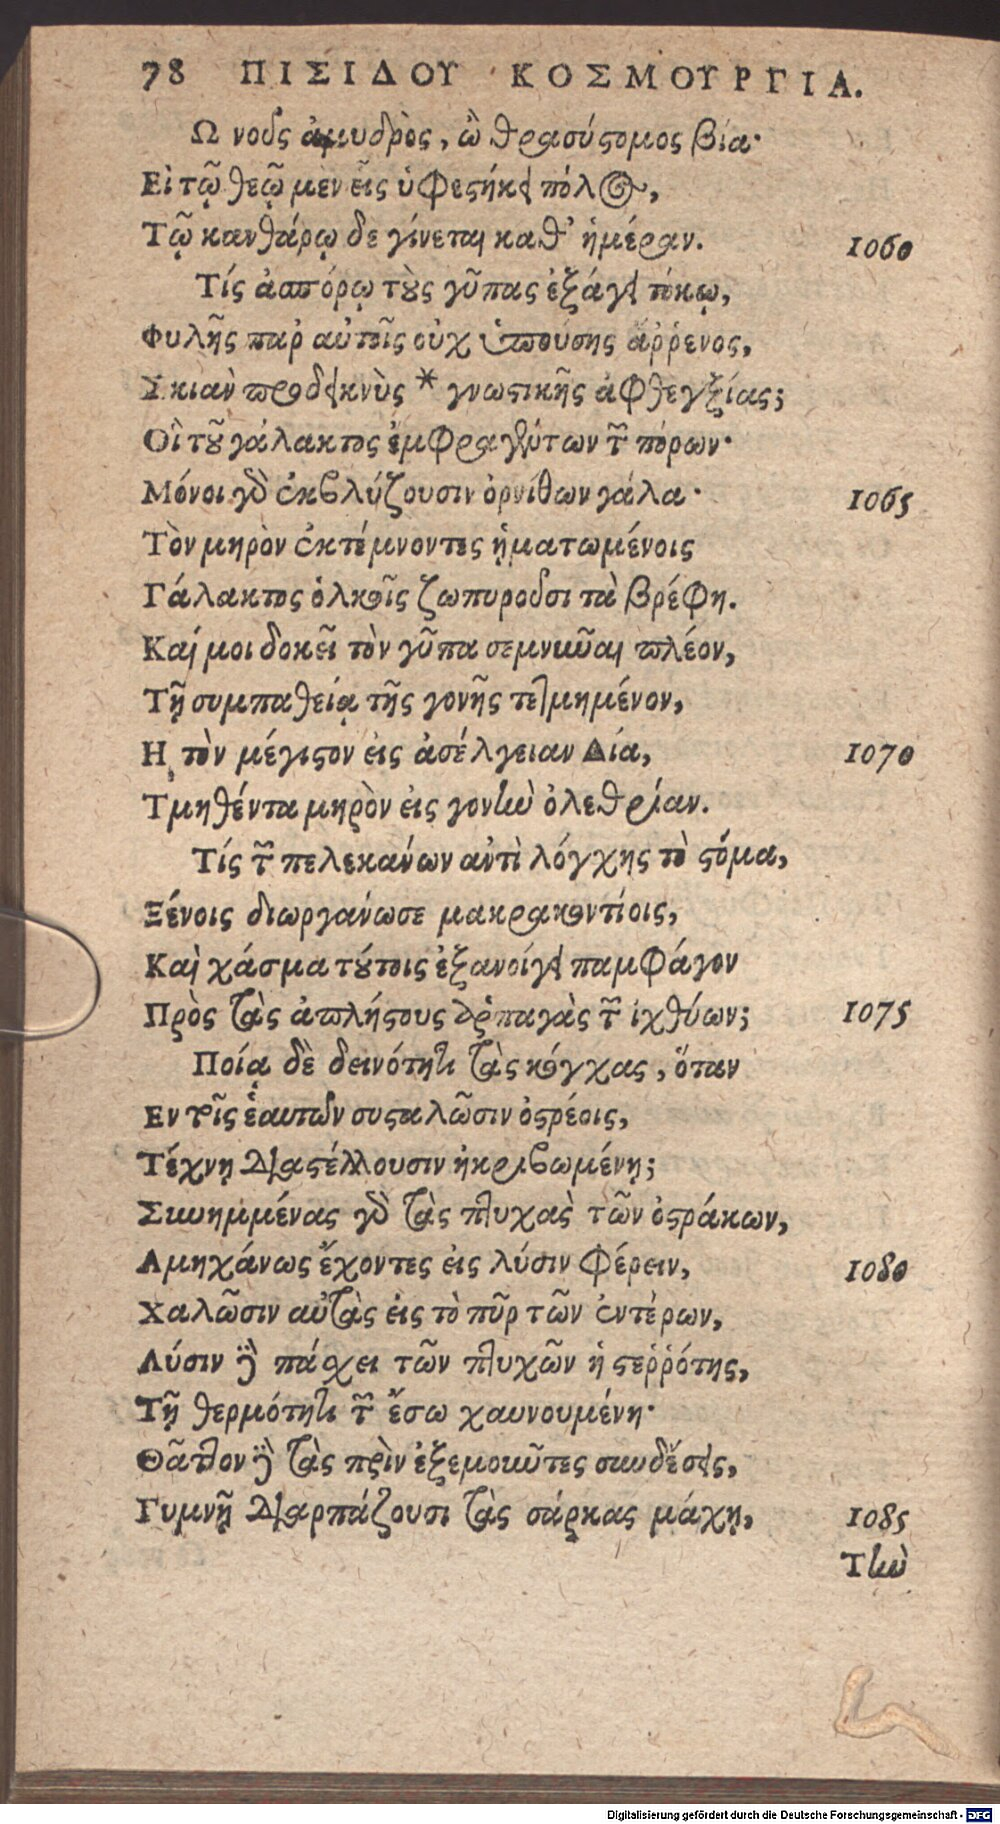 78 ΠΙΣΙΔΟΥ ΚΟΣΜΟΥΡΓΙΑ.
Ω νοῦς ἀμυδρὸς, ὢ θρασύστομος βία·
Εἰ τῷ θεῷ μεν εἷς ὑφεστήκει πόλος,
Τῷ κανθάρῳ δε γίνεται καθ' ἡμέραν. 1060
Τίς ἀσπόρῳ τοὺς γῦπας ἐξάγει τόκῳ,
Φυλῆς παρ αὐτοῖς οὐχ ὑπούσης ἄῤῥενος,
Σκιὰν προδεικνὺς * γνωστικῆς ἀφθεγξίας;
Οἳ τοῦ γάλακτος ἐμφραγέντων τῶν πόρων·
Μόνοι γὰρ ἐκβλύζουσιν ὀρνίθων γάλα· 1065
Τὸν μηρὸν ἐκτέμνοντες ᾑματωμένοις
Γάλακτος ὁλκοῖς ζωπυροῦσι τὰ βρέφη.
Καί μοι δοκεῖ τὸν γῦπα σεμνῦναι πλέον,
Τῇ συμπαθείᾳ τῆς γονῆς τετμημένον,
Η τὸν μέγιστον εἰς ἀσέλγειαν Δία, 1070
Τμηθέντα μηρὸν εἰς γονὴν ὀλεθρίαν.
Τίς τῶν πελεκάνων ἀντὶ λόγχης τὸ στόμα,
Ξένοις διωργάνωσε μακρακοντίοις,
Καὶ χάσμα τούτοις ἐξανοίγει παμφάγον
Πρὸς τὰς ἀπλήστους ἁρπαγὰς τῶν ἰχθύων; 1075
Ποίᾳ δὲ δεινότητι τὰς κόγχας, ὅταν
Εν τοῖς ἑαυτῶν συσταλῶσιν ὀστρέοις,
Τέχνῃ διαστέλλουσιν ἠκριβωμένῃ;
Συνημμένας γὰρ τὰς πτυχὰς τῶν ὀστράκων,
Αμηχάνως ἔχοντες εἰς λύσιν φέρειν, 1080
Χαλῶσιν αὐτὰς εἰς τὸ πῦρ τῶν ἐντέρων,
Λύσιν δὲ πάσχει τῶν πτυχῶν ἡ στεῤῥότης,
Τῇ θερμότητι τῶν ἔσω χαυνουμένη·
Θᾶττον δὲ τὰς πρὶν ἐξεμοῦντες συνδέσεις,
Γυμνῇ διαρπάζουσι τὰς σάρκας μάχῃ, 1085
Τὴν
Digitalisierung gefördert durch die Deutsche Forschungsgemeinschaft - DFG